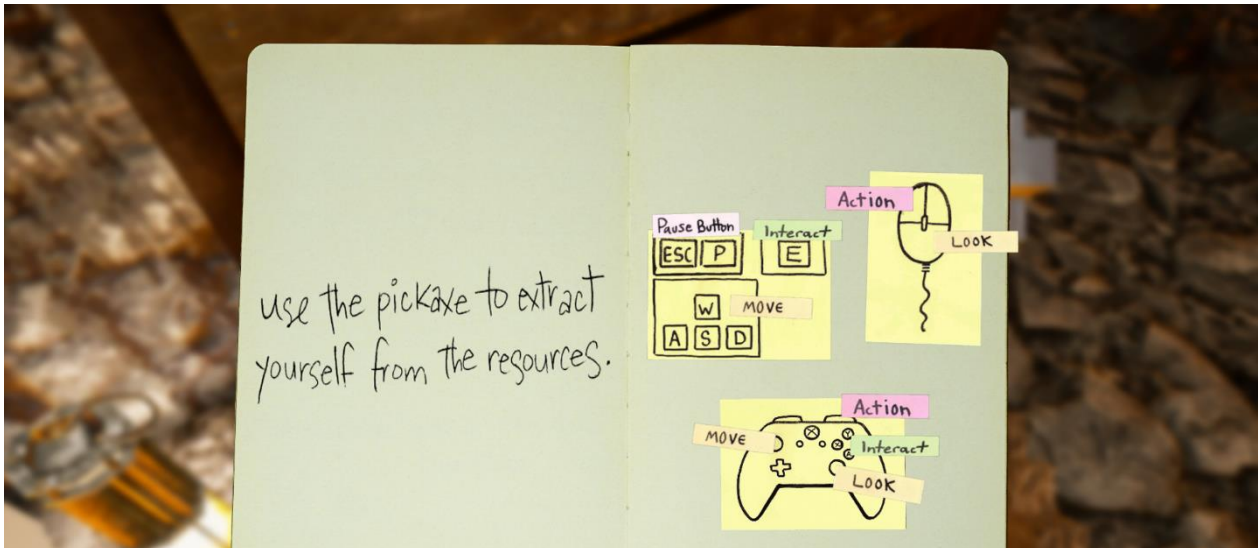 use the pickaxe to extract
yourself from the resources.
Pause Button
Interact
ESC P
E
W
MOVE
A S D
Action
LOOK
Action
MOVE
X
Y
Interact
LOOK